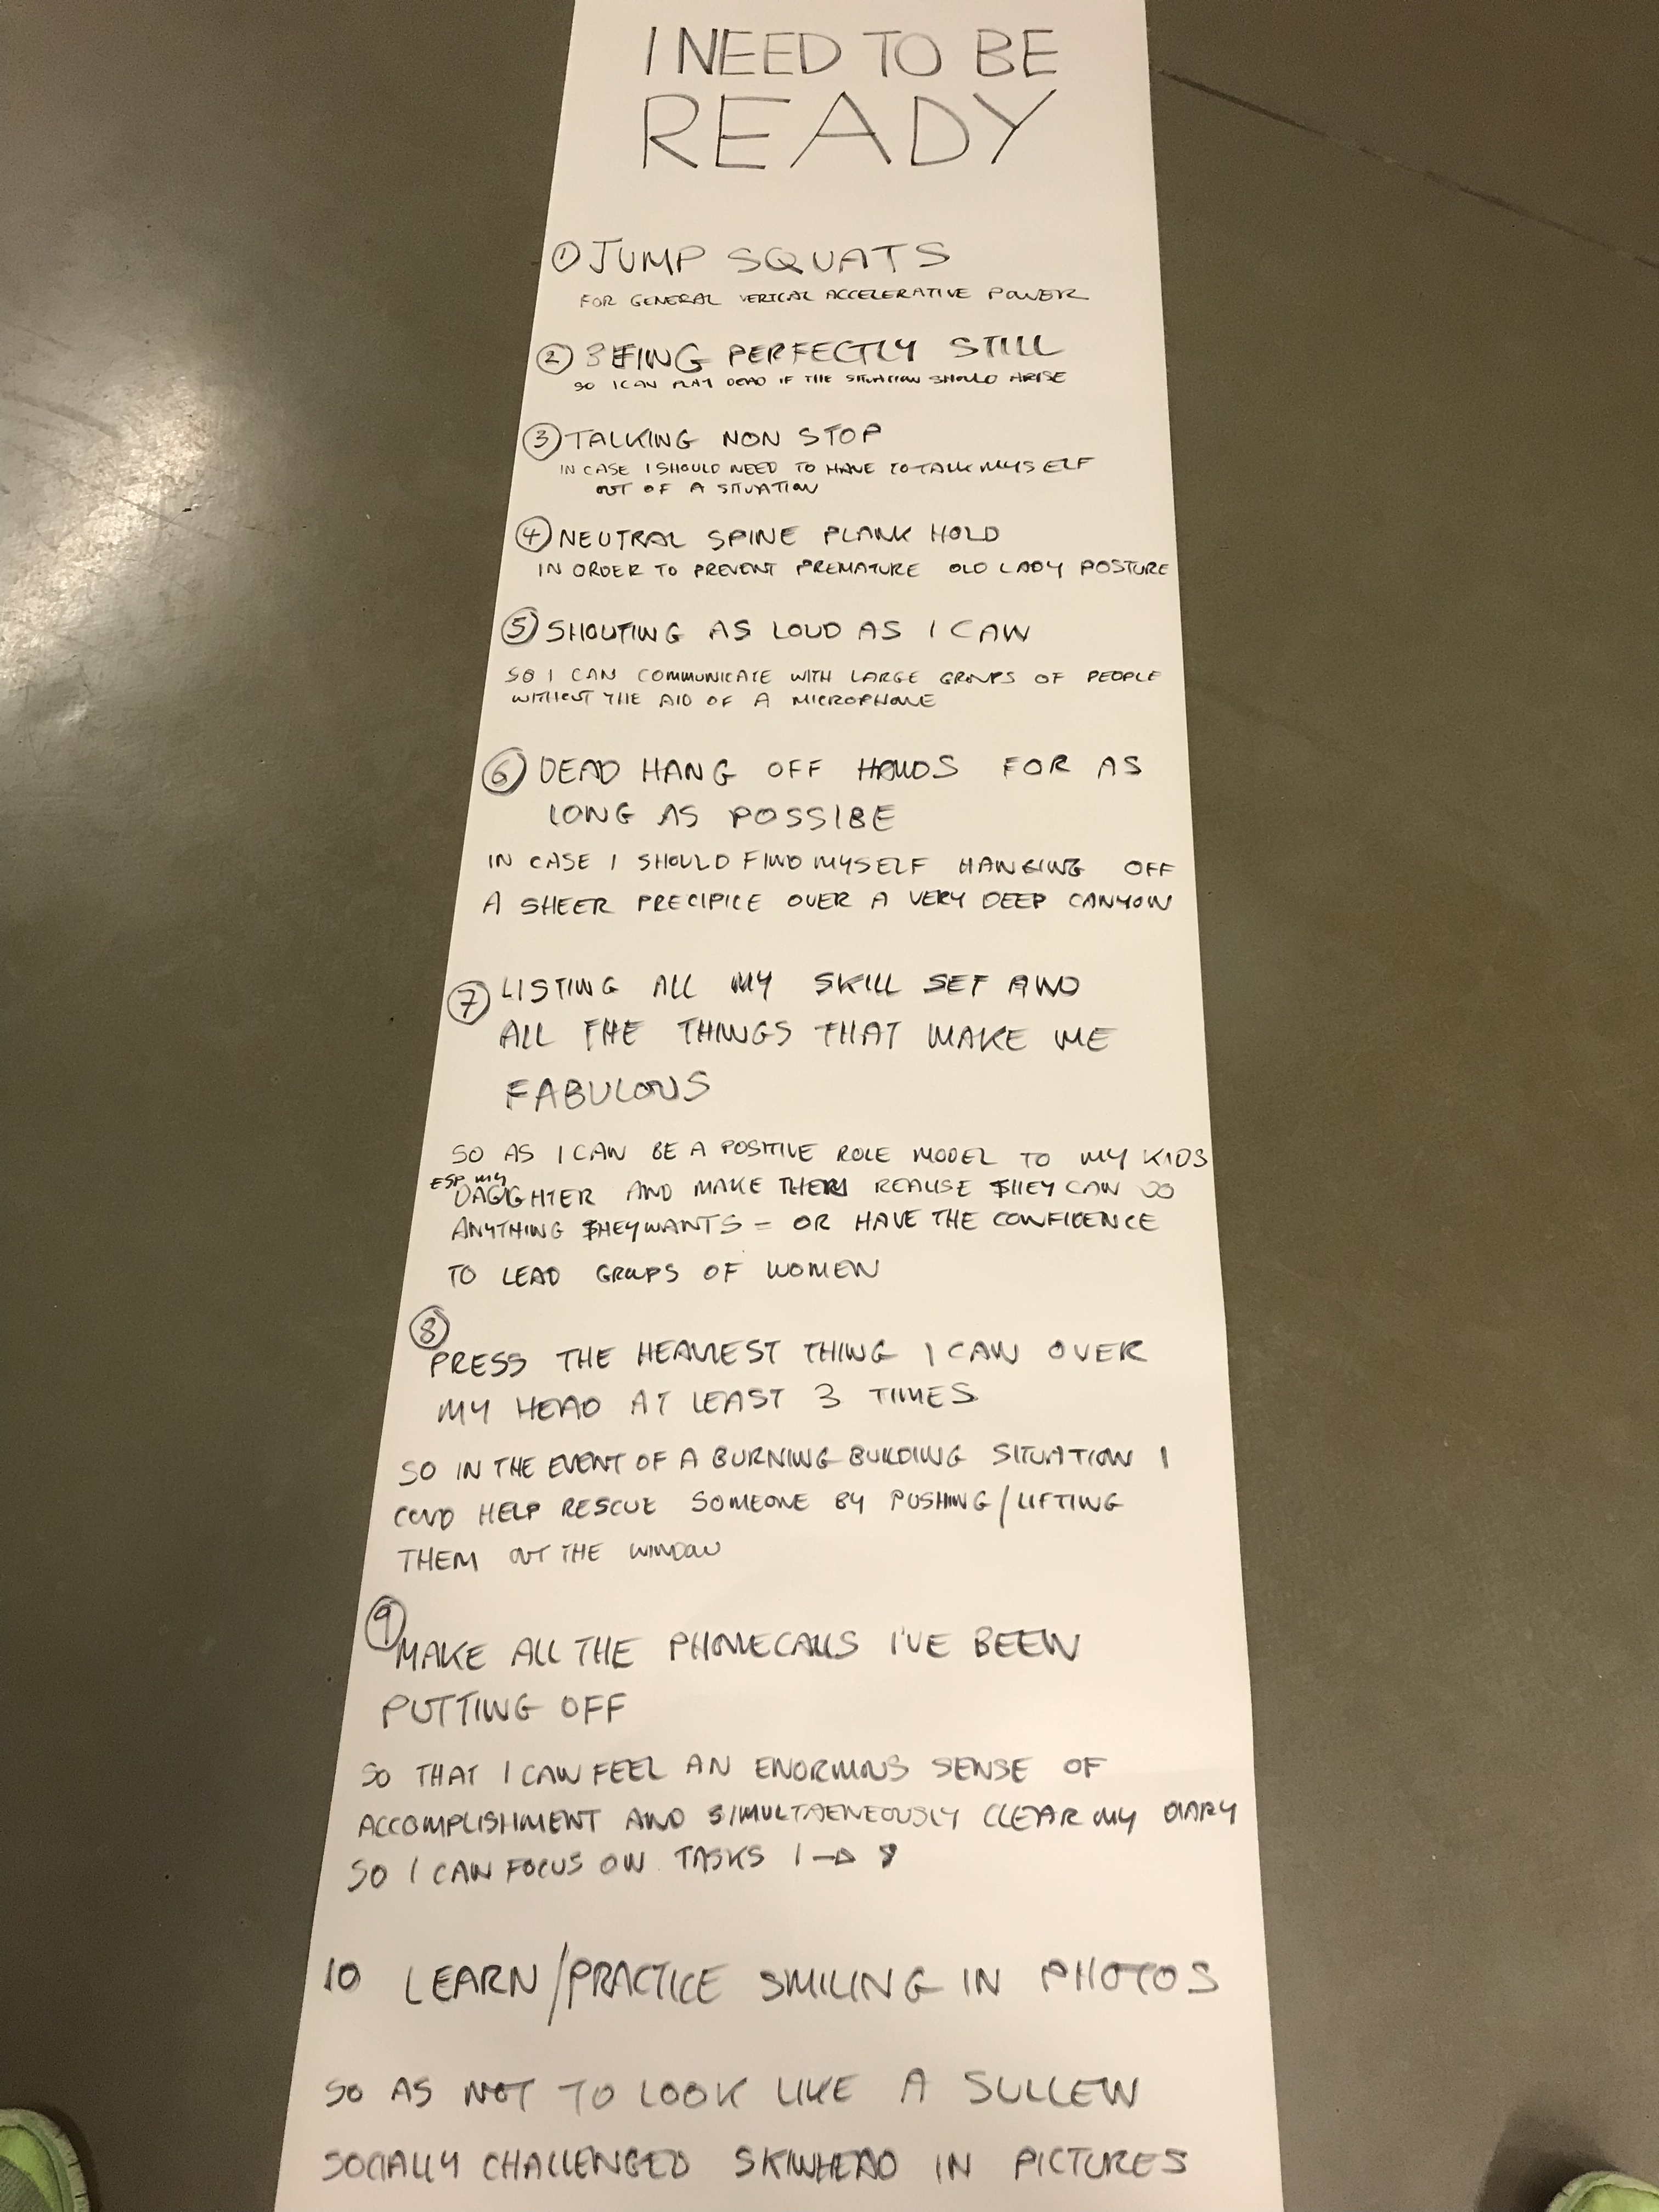 I NEED TO BE
READY
① JUMP SQUATS
FOR GENERAL VERTICAL ACCELERATIVE POWER
② BEING PERFECTLY STILL
SO I CAN PLAY DEAD IF THE SITUATION SHOULD ARISE
③ TALKING NON STOP
IN CASE I SHOULD NEED TO HAVE TO TALK MYSELF
OUT OF A SITUATION
④ NEUTRAL SPINE PLANK HOLD
IN ORDER TO PREVENT PREMATURE OLD LADY POSTURE
⑤ SHOUTING AS LOUD AS I CAN
SO I CAN COMMUNICATE WITH LARGE GROUPS OF PEOPLE
WITHOUT THE AID OF A MICROPHONE
⑥ DEAD HANG OFF HANDS FOR AS
LONG AS POSSIBE
IN CASE I SHOULD FIND MYSELF HANGING OFF
A SHEER PRECIPICE OVER A VERY DEEP CANYON
⑦ LISTING ALL MY SKILL SET AND
ALL THE THINGS THAT MAKE ME
FABULOUS
SO AS I CAN BE A POSITIVE ROLE MODEL TO MY KIDS
ESP MY
DAUGHTER AND MAKE THEM REALISE THEY CAN DO
ANYTHING THEY WANTS = OR HAVE THE CONFIDENCE
TO LEAD GROUPS OF WOMEN
⑧
PRESS THE HEAVIEST THING I CAN OVER
MY HEAD AT LEAST 3 TIMES
SO IN THE EVENT OF A BURNING BUILDING SITUATION I
COULD HELP RESCUE SOMEONE BY PUSHING/LIFTING
THEM OUT THE WINDOW
⑨
MAKE ALL THE PHONECALLS I'VE BEEN
PUTTING OFF
SO THAT I CAN FEEL AN ENORMOUS SENSE OF
ACCOMPLISHMENT AND SIMULTAENEOUSLY CLEAR MY DIARY
SO I CAN FOCUS ON TASKS 1 → 8
10 LEARN/PRACTICE SMILING IN PHOTOS
SO AS NOT TO LOOK LIKE A SULLEN
SOCIALLY CHALLENGED SKINHEAD IN PICTURES